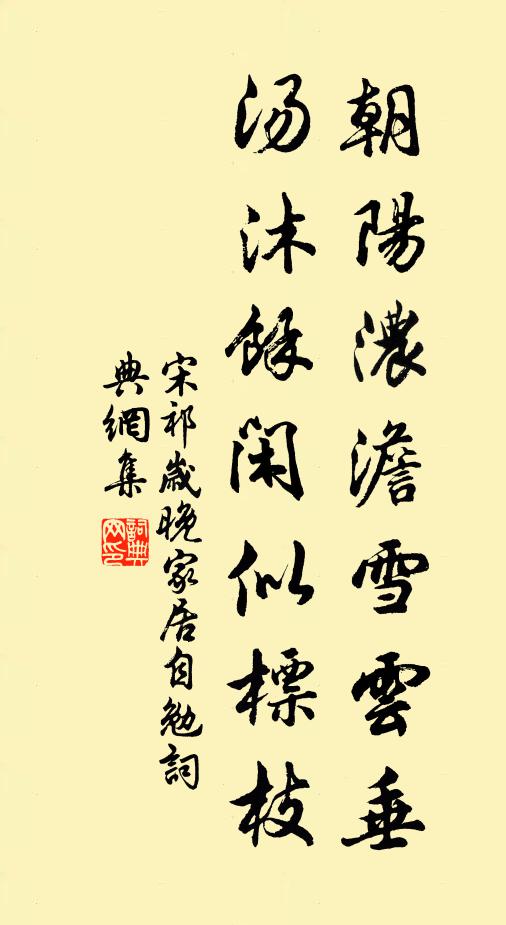 朝陽濃澹雪雲垂
湯沐餘閑似標枝
宋祁歲晚家居自勉詞
典網集
詞典
网印